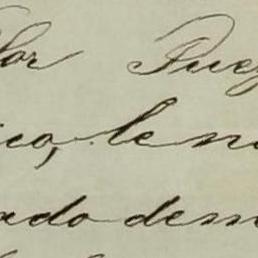 lor Puez
ico, le no
ado dem